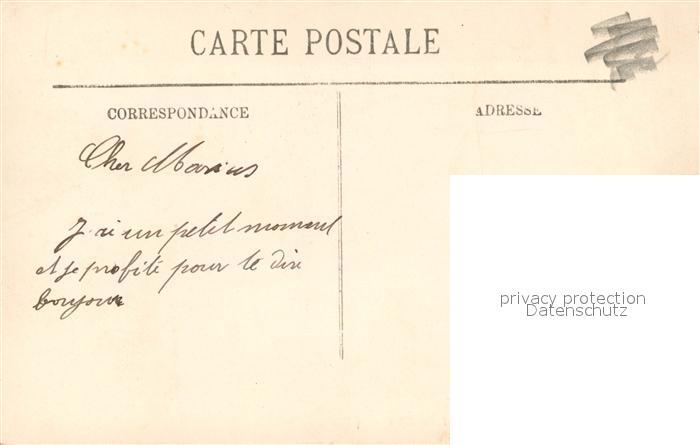 CARTE POSTALE
CORRESPONDANCE
ADRESSE
Cher Marius
J'ai un petit moment
et je profite pour te dire
bonjour
privacy protection
Datenschutz